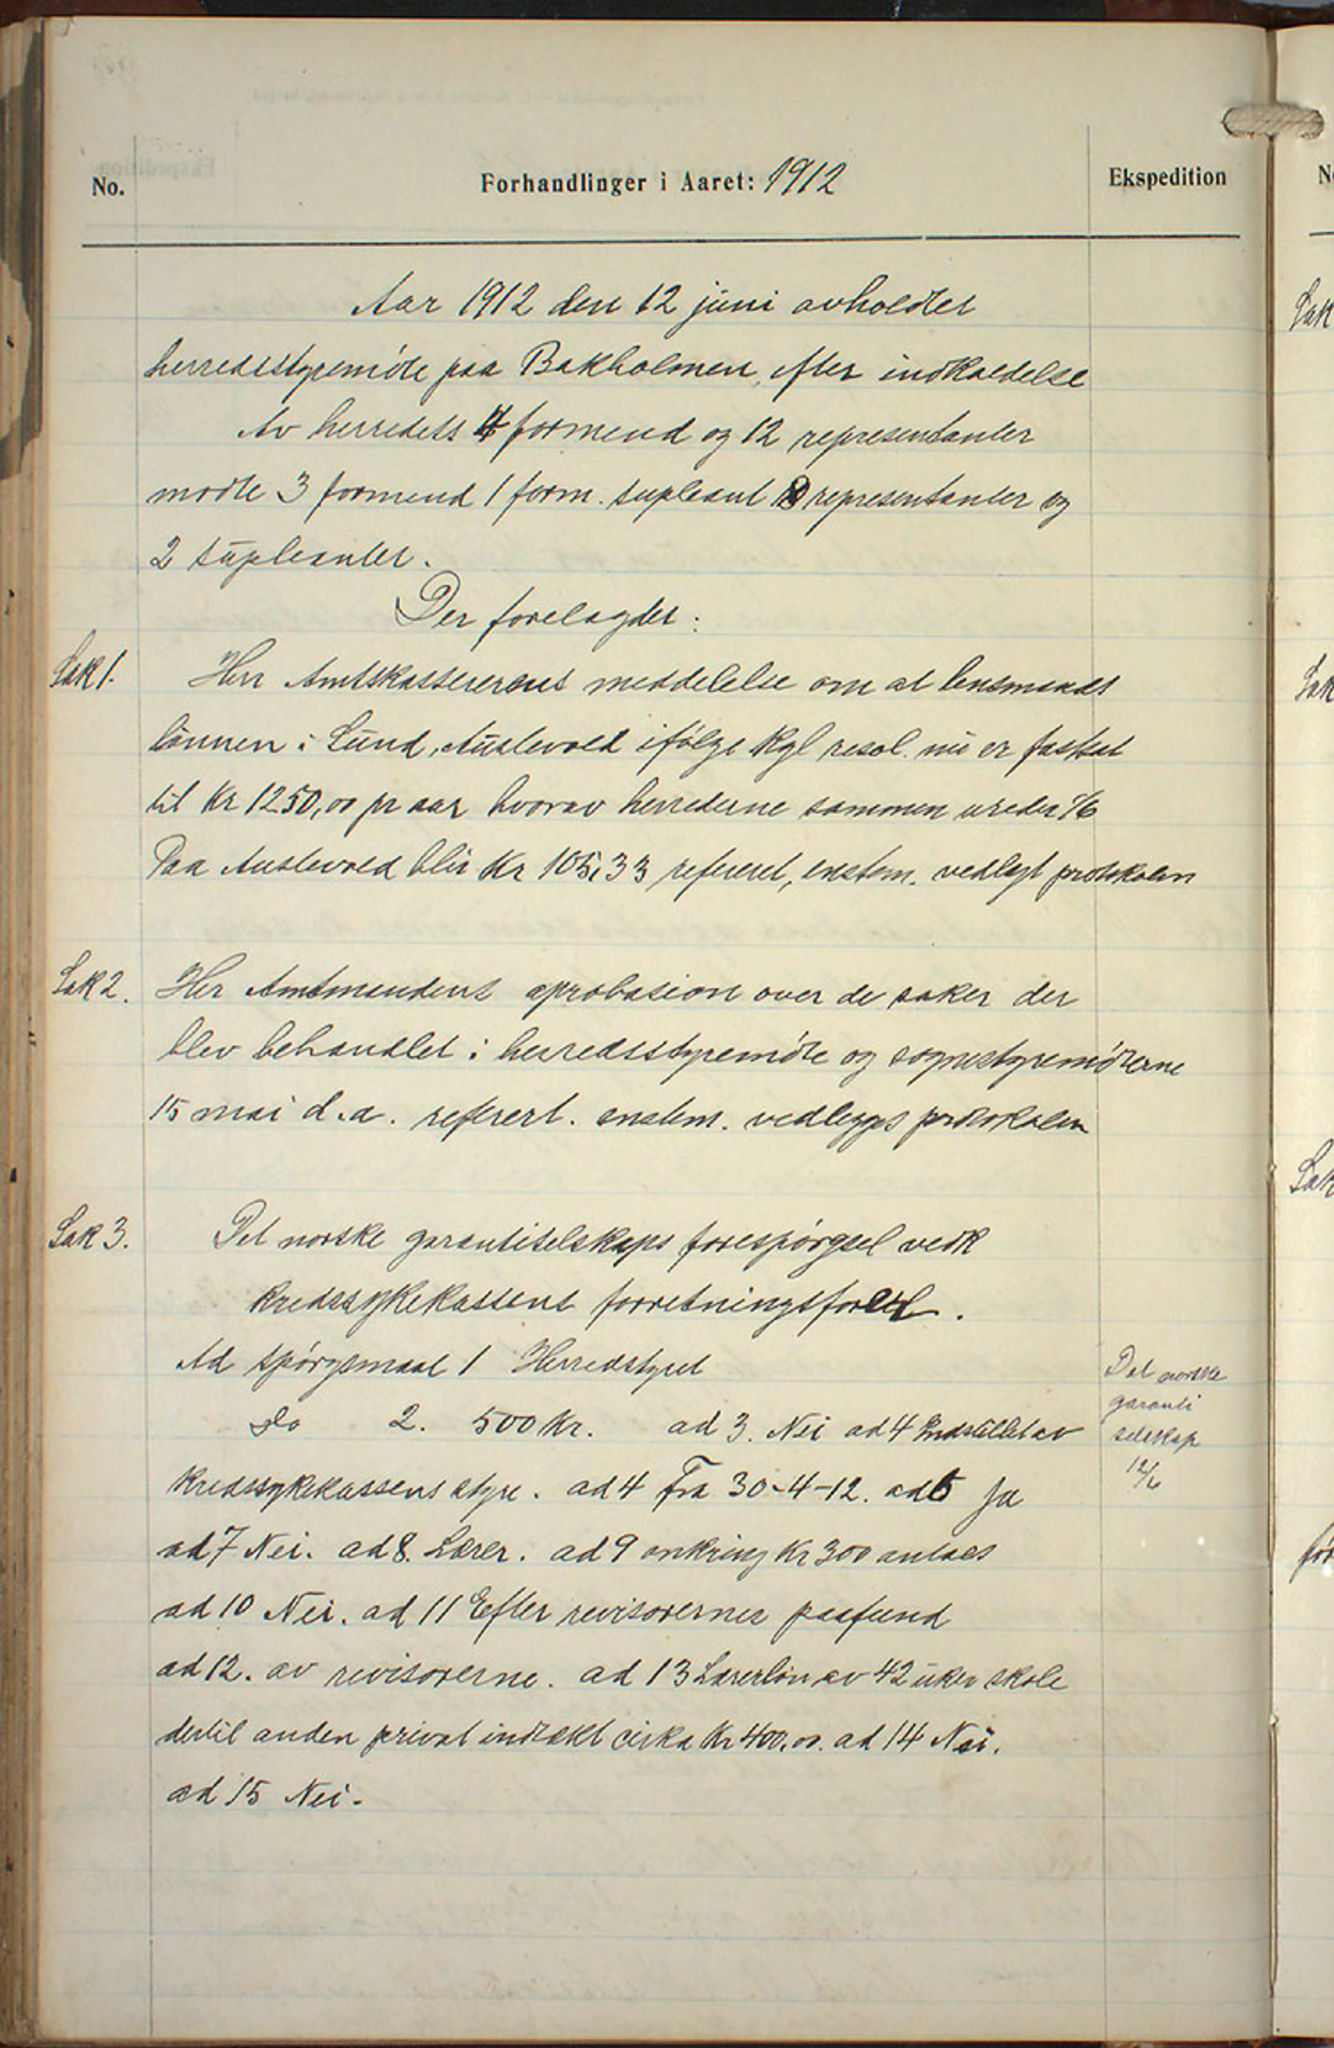 No.
Forhandlinger i Aaret: 1912
Ekspedition
Aar 1912 den 12 juni avholdtes
herredsstyremöte paa Bakholmen, efter indkaldelse
Av herredets 4 formend og 12 representanter
mødte 3 formend 1 form. supleant 10 representanter og
2 supleanter.
Der forelagdes:
Sak 1.
Herr Amtskassererens meddelelse om at lensmands
lönnen i Sund, Austevold ifölge Kgl resol. nu er fastsat
til Kr 1250,00 pr aar hvorav herrederne sammen utreder 1/6
Paa Austevold blir Kr 105,33 referert, enstem. vedlagt protokolen
Sak 2.
Her Amtmandens aprobasion over de saker der
blev behandlet i herredsstyremöte og sognestyremöterne
15 mai d.a. referert. enstem. vedlegges protokolen
Sak 3.
Det norske garantiselskaps forespörgsel vedk
kredssykekassens forretningsförsel.
Ad spörgsmaal 1 Herredstyret
Do 2. 500 Kr. ad 3. Nei ad 4 Indstillet av
kredssykekassens styre. ad 4 Fra 30-4-12. ad 5 Ja
ad 7 Nei. ad 8. Lærer. ad 9 omkring Kr 300 antaes
ad 10 Nei. ad 11 Efter revisorernes paafund
ad 12. av revisorerne. ad 13 Lærerlön av 42 uker skole
dertil anden privat indtækt cirka Kr 400,00. ad 14 Nei.
ad 15 Nei.
Det norske
garanti
selskap
12/6